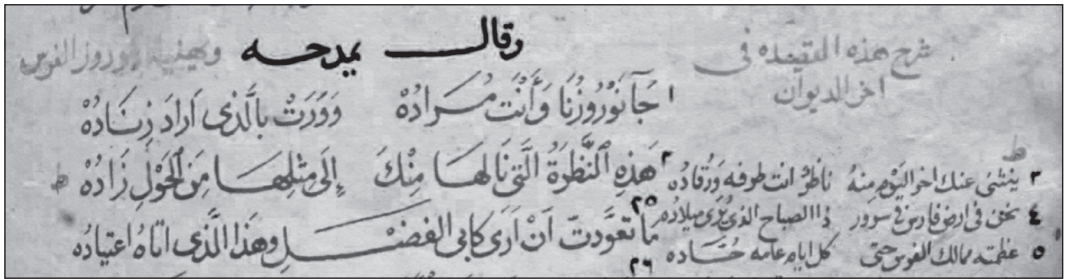 شرح هذه القصيده فى
اخر الديوان
وقال يمدحه ويهنيه بنوروز الفرس
١ جَآ نَوْرُوزُنَا وَأَنْتَ مُرَادُهْ وَوَرَتْ بِالَّذِى اَرَادَ زِنَادُهْ
٢ هَذِهِ النَّظْرَةُ الَّتِى نَالَهَا مِنْكَ إِلَى مِثْلِهَا مِنَ الْحَوْلِ زَادُهْ
٣ ينثنى عنك اخر اليوم مِنهُ ناظرٌ انت طرفه وَرُقاده
٤ نحن فى ارض فارس فى سرور ذا الصباح الذى يُرى ميلاده
٥ عظمته ممالك الفرس حتى كل ايام عامه حُسّاده
٢٥ مَا تعَوَّدت اَنْ اَرَى كابى الفضل وهذا الَّذى اتاهُ اعتيادُه
٢٦